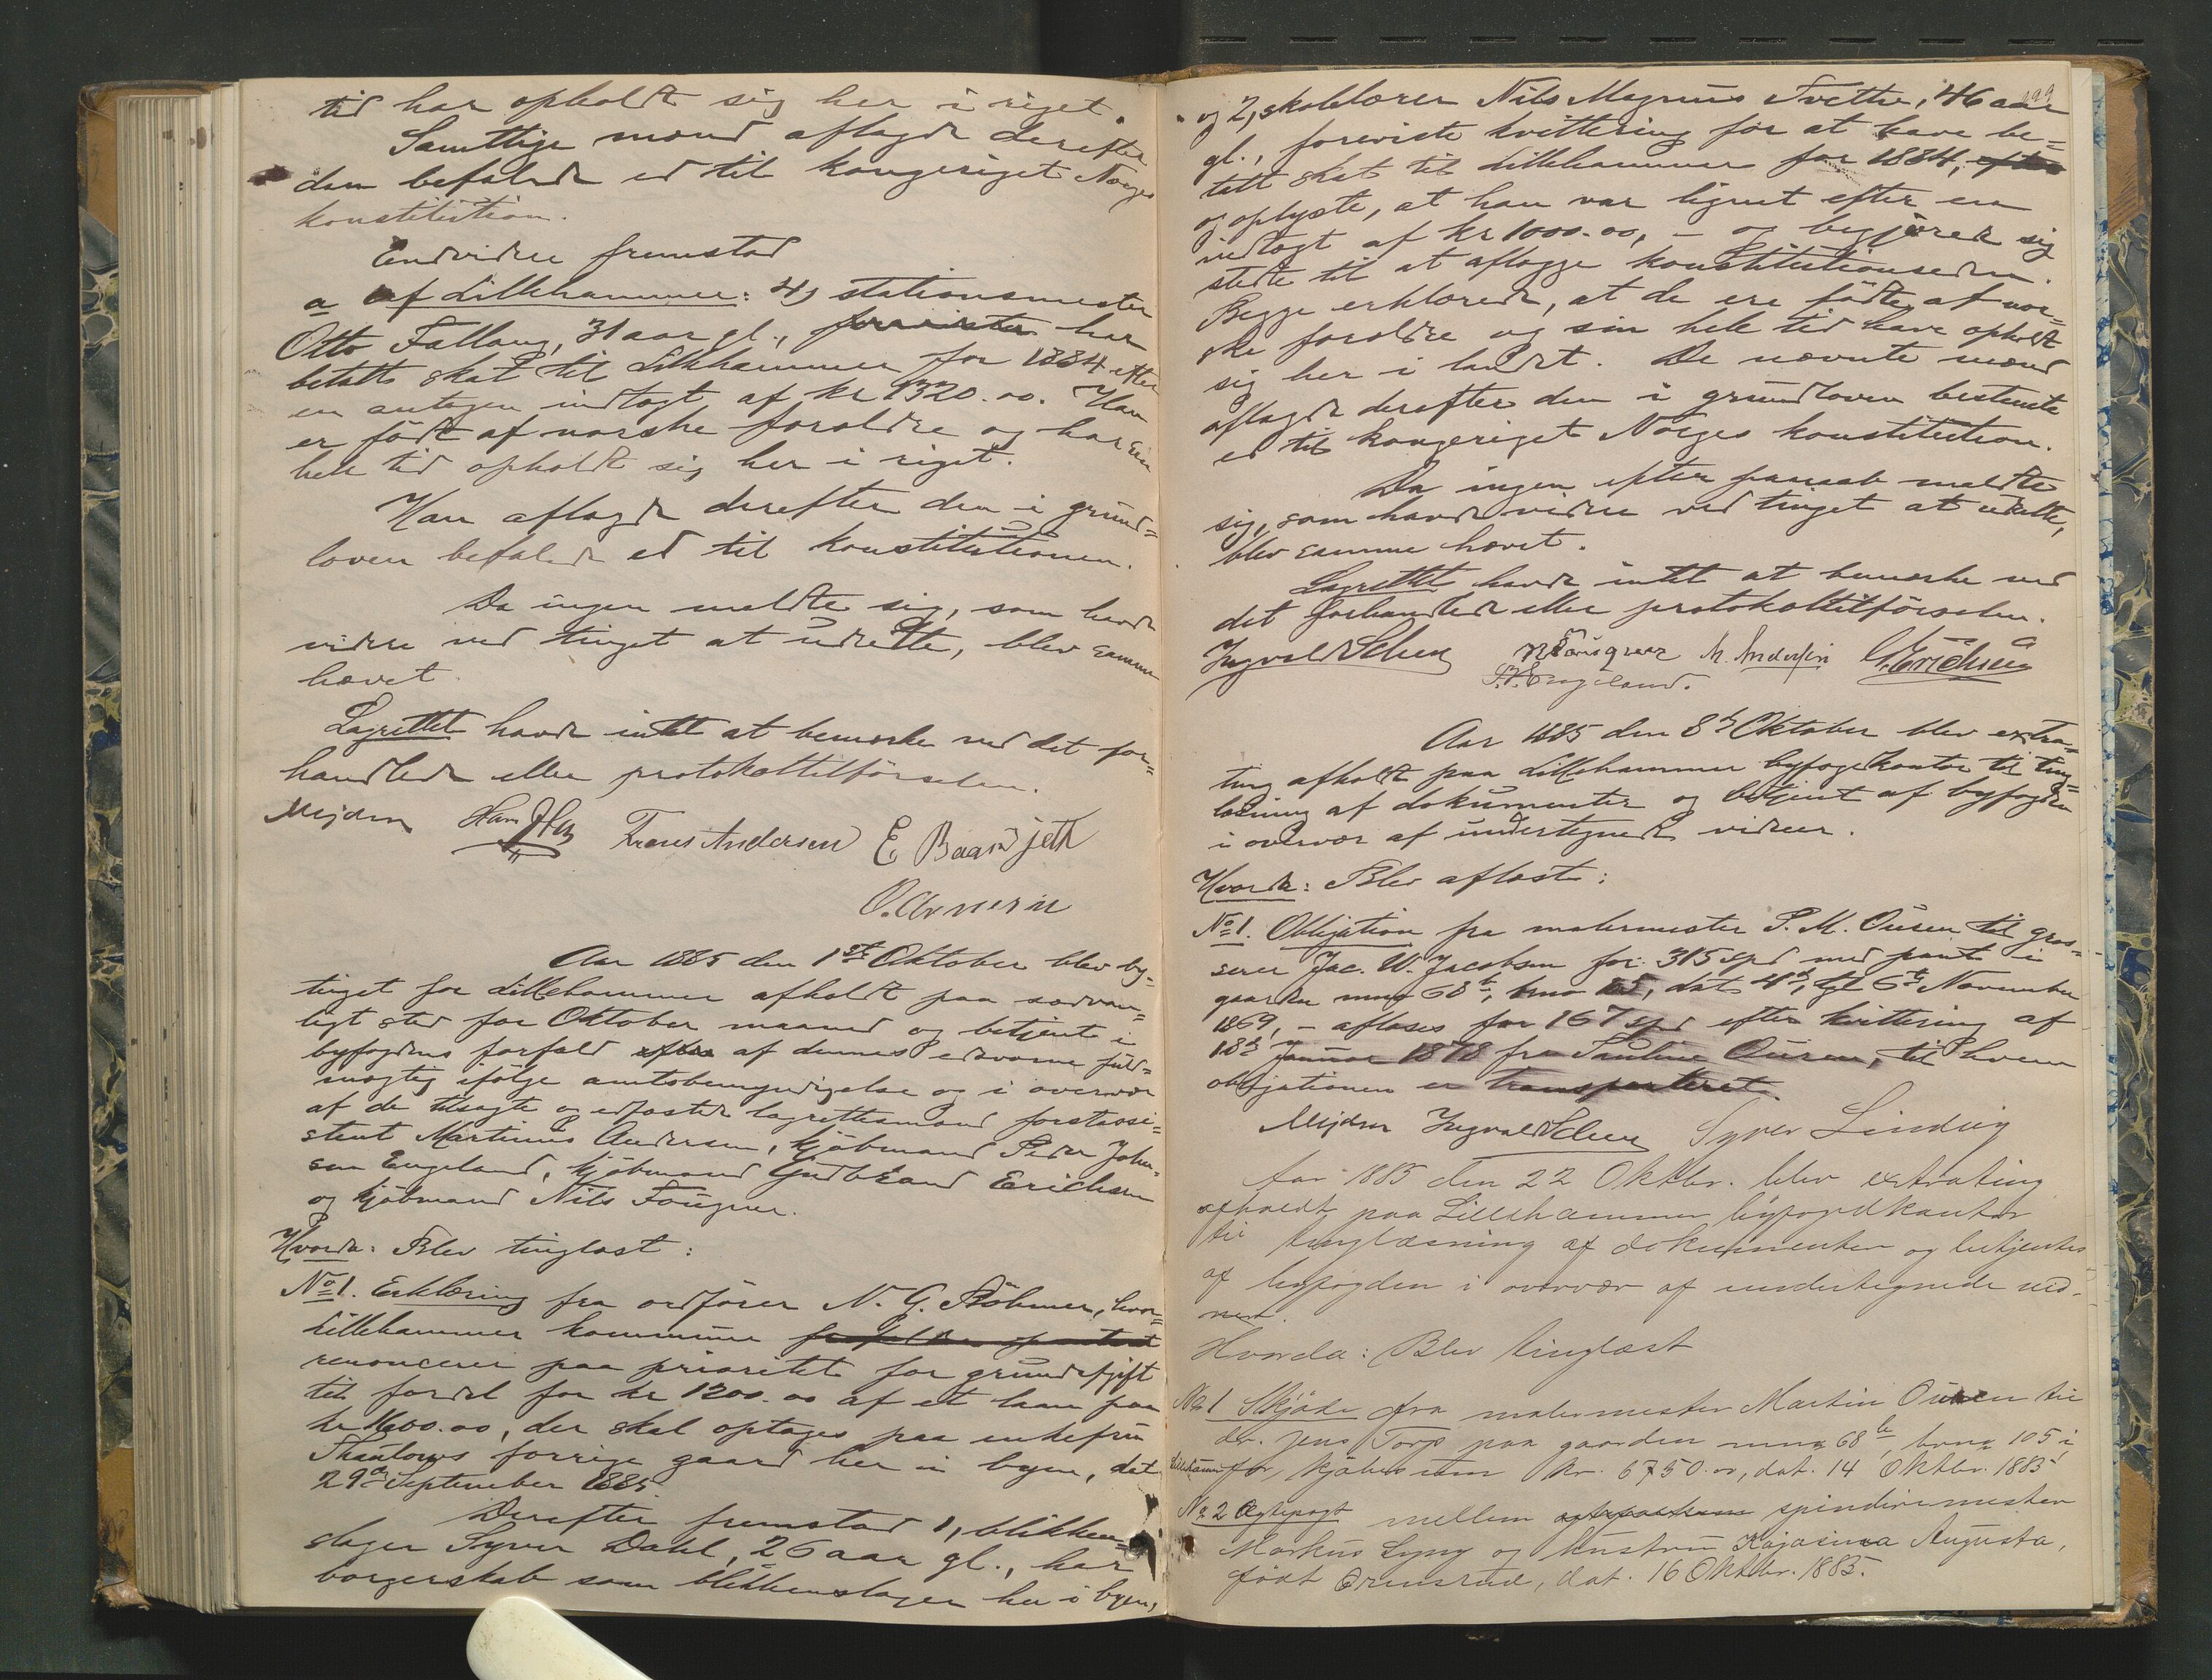 tid har opholdt sig her i riget.
Samtlige mænd aflagde derefter
den befalede ed til kongeriget Norges
konstitution.
Endvidere fremstod
a af Lillehammer: 4, stationsmester
Otto Fallang, 31 aar gl., foreviste har
betalt skat til Lillehammer for 1884 efter
en antagen indtægt af kr 1320.00. Han
er födt af norske forældre og har sin
hele tid opholdt sig her i riget.
Han aflagde derefter den i grund=
loven befalede ed til konstitutionen.
Da ingen meldte sig, som havde
videre ved tinget at udrette, blev samme
hævet.
Lagrettet havde intet at bemærke ved det for=
handlede eller protokoltilförselen.
Mejdem Frans Andersen E Baas
Aar 1885 den 1ste Oktober blev by=
tinget for Lillehammer afholdt paa sædvan=
ligt sted for Oktober maaned og betjent i
byfogdens forfald efter af dennes edsvorne fuld=
mægtig ifölge amtsbemyndigelse og i overvær
af de tilsagte og edfæstede lagrettesmænd forstassi=
stent Martinus Andersen, kjöbmand Peder John=
sen Engeland, kjöbmand Gudbrand Erichsen
og kjöbmand Nils Fougner.
Hvorda: Blev tinglæst:
No 1. Erklæring fra ordförer N. G. Böhmer, hvor=
Lillehammer kommune
renoncerer paa prioritet for grundafgift
til fordel for kr 1200.00 af et laan paa
kr 1600.00, der skal optages paa enkefru
Thaulows forrige gaard her i byen, dat
29de September 1885.
Derefter fremstod 1, blikken=
slager Syver Dahl, 26 aar gl., har
borgerskab som blikkenslager her i byen,
199
og 2, skolelærer Nils Magnus Tvethe, 46 aar
gl., foreviste kvittering for at have be=
talt skat til Lillehammer for 1884, efter
og oplyste, at han var lignet efter en
indtægt af kr 1000.00, – og begjærede sig
stedt til at aflægge konstitutionseden.
Begge erklærede, at de ere födte af nor=
ske forældre og sin hele tid have opholdt
sig her i landet. De nævnte mænd
aflagde derefter den i grundloven bestemte
ed til kongeriget Norges konstitution.
Da ingen efter paaraab meldte
sig, som havde videre ved tinget at udrette,
blev samme hævet.
Lagrettet havde intet at bemærke ved
det forhandlede eller protokoltilförselen.
Ingvald Schee N Fougner M. Andersen G. Erichsen
P. J. Engeland.
Aar 1885 den 8de Oktober blev extra=
ting afholdt paa Lillehammer byfogedkontor til ting=
læsning af dokumenter og betjent af byfogden
i overvær af undertegnede vidner.
Hvorda: Blev aflæst:
No 1. Obligation fra malermester P. M. Ouren til gros=
serer Jac. W. Jacobsen for 315 spd med pant i
gaarden mno 68b, bno 105, dat 4de, tgl 6te November
1869, – aflæses for 167 spd efter kvittering af
18de Januar 1878 fra Pauline Ouren, til hvem
obligationen er transporteret.
Mejdem Ingvald Schee Syver Linding
Aar 1885 den 22 Oktbr. blev extrating
afholdt paa Lillehammer byfogedkontor
til tinglæsning af dokumenter og betjentes
af byfogden i overvær af undertegnede vid=
ner.
Hvorda: Blev tinglæst
No 1 Skjöde fra malermester Martin Ouren til
dr. Jens Torp paa gaarden mno 68b, brno 105 i
Lillehammer for kjöbesum kr. 6750.00, dat. 14 Oktbr. 1885
No 2 Ægtepagt mellem spinderimester
Markus Lyng og hustru Kajasina Augusta,
födt Ornsrud, dat. 16 Oktbr. 1885.